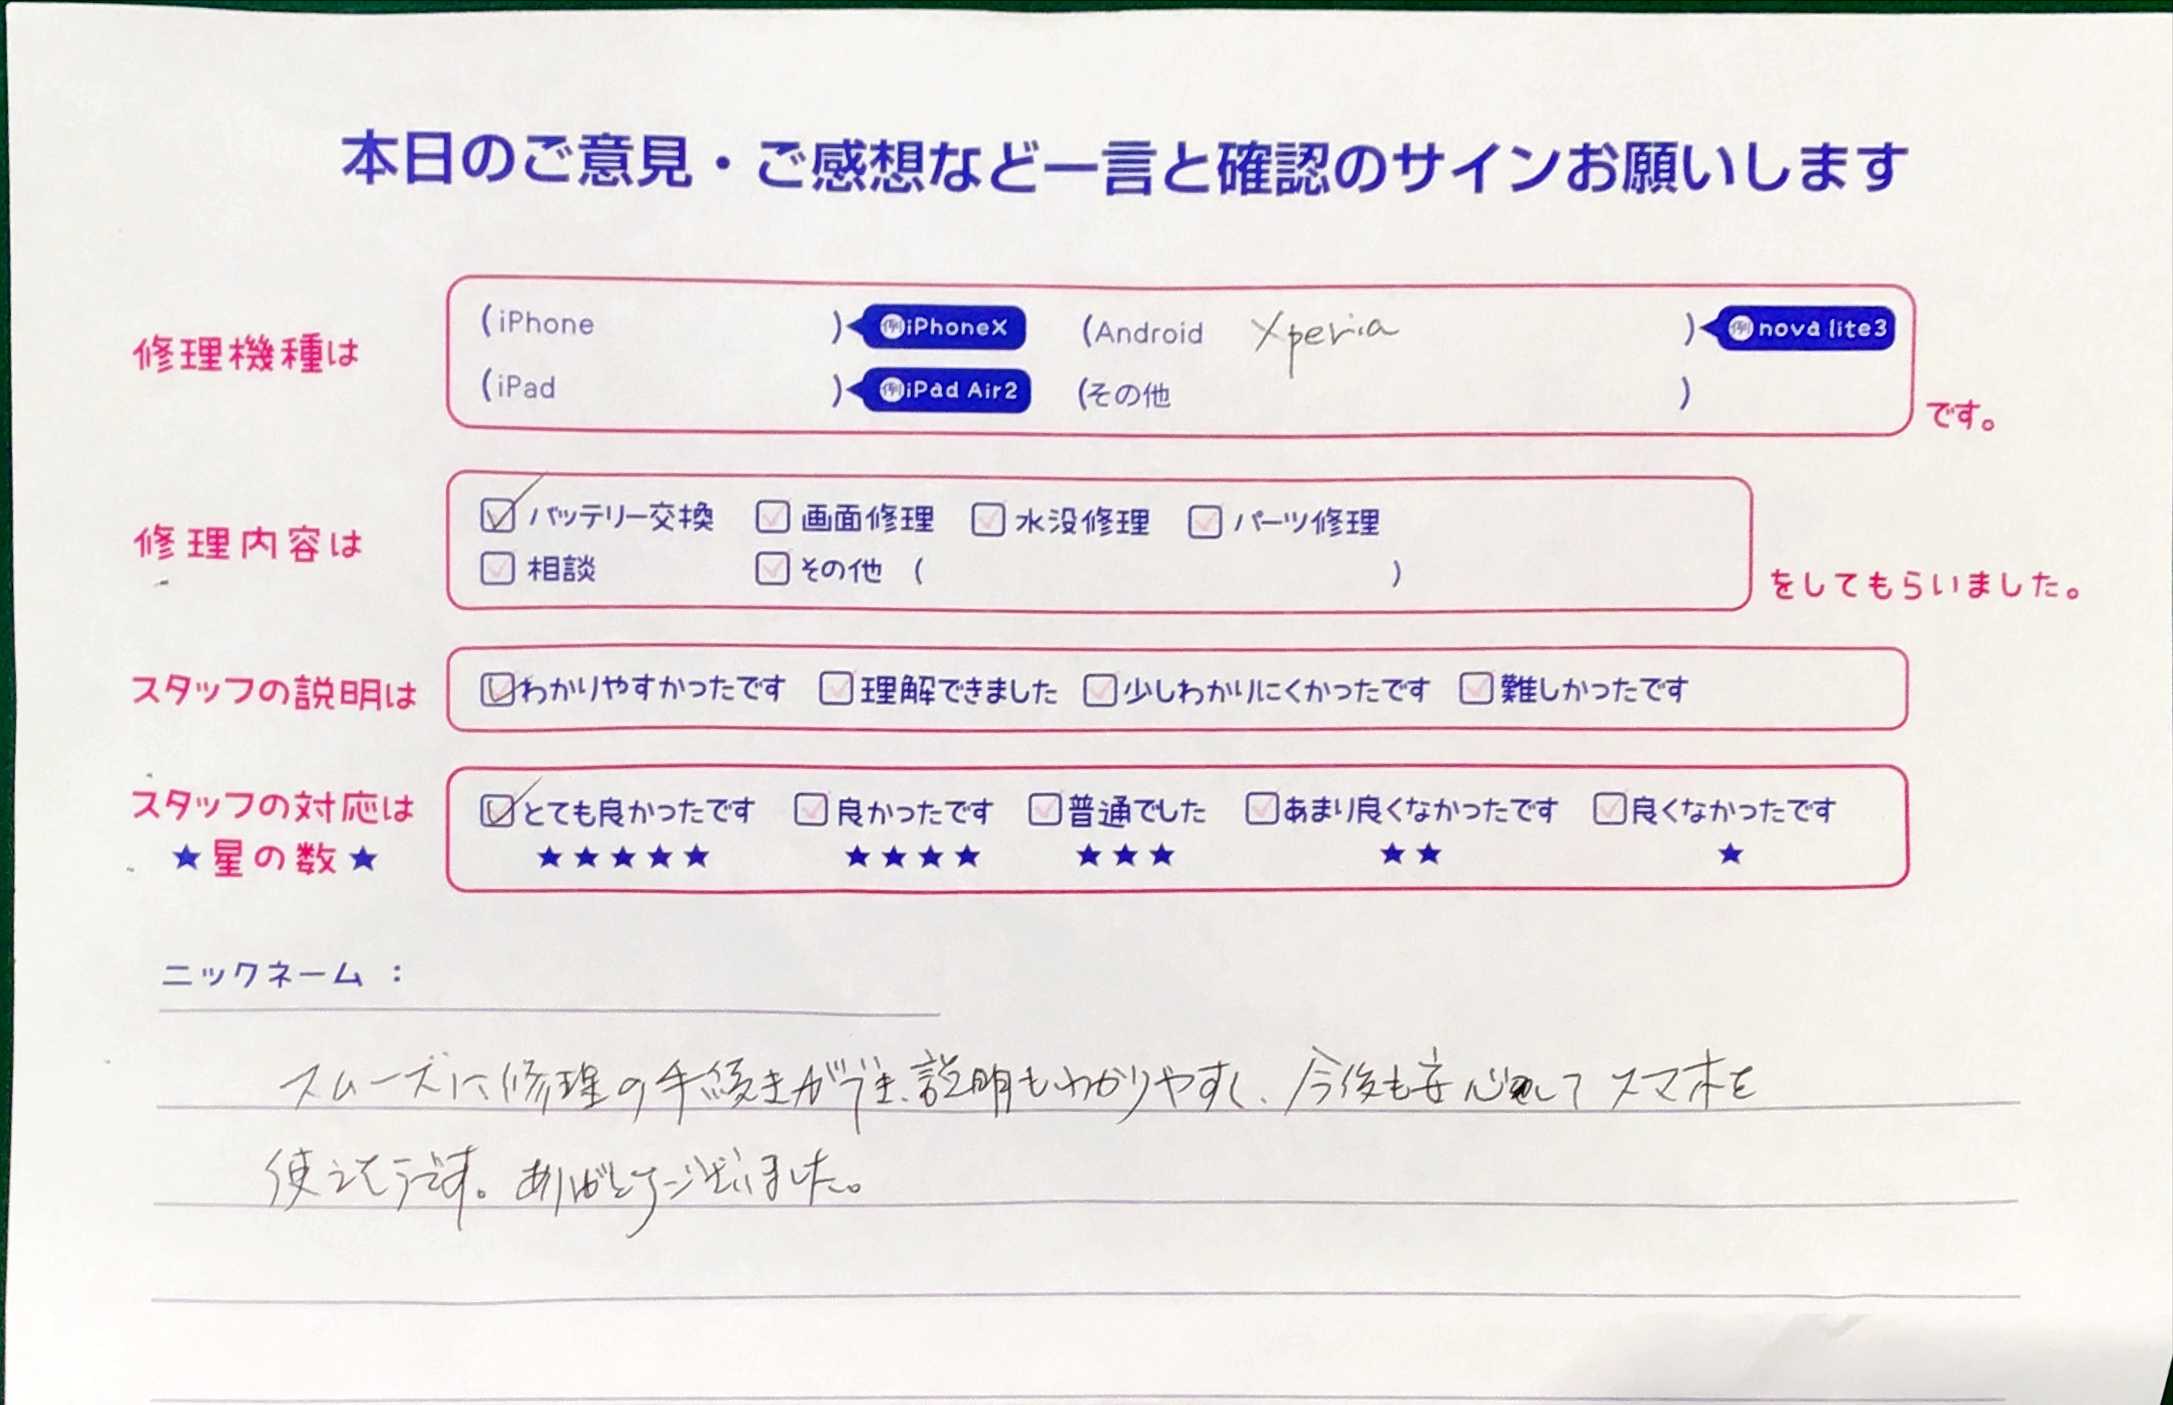 本日のご意見・ご感想など一言と確認のサインお願いします
修理機種は
(iPhone ) 例iPhoneX (Android Xperia ) 例nova lite3
(iPad ) 例iPad Air2 (その他 )
です。
修理内容は
バッテリー交換 画面修理 水没修理 パーツ修理
相談 その他 ( )
をしてもらいました。
スタッフの説明は
わかりやすかったです 理解できました 少しわかりにくかったです 難しかったです
スタッフの対応は
★星の数★
とても良かったです 良かったです 普通でした あまり良くなかったです 良くなかったです
★★★★★ ★★★★ ★★★ ★★ ★
ニックネーム :
スムーズに修理の手続きができ、説明もわかりやすく、今後も安心してスマホを
使えそうです。ありがとうございました。